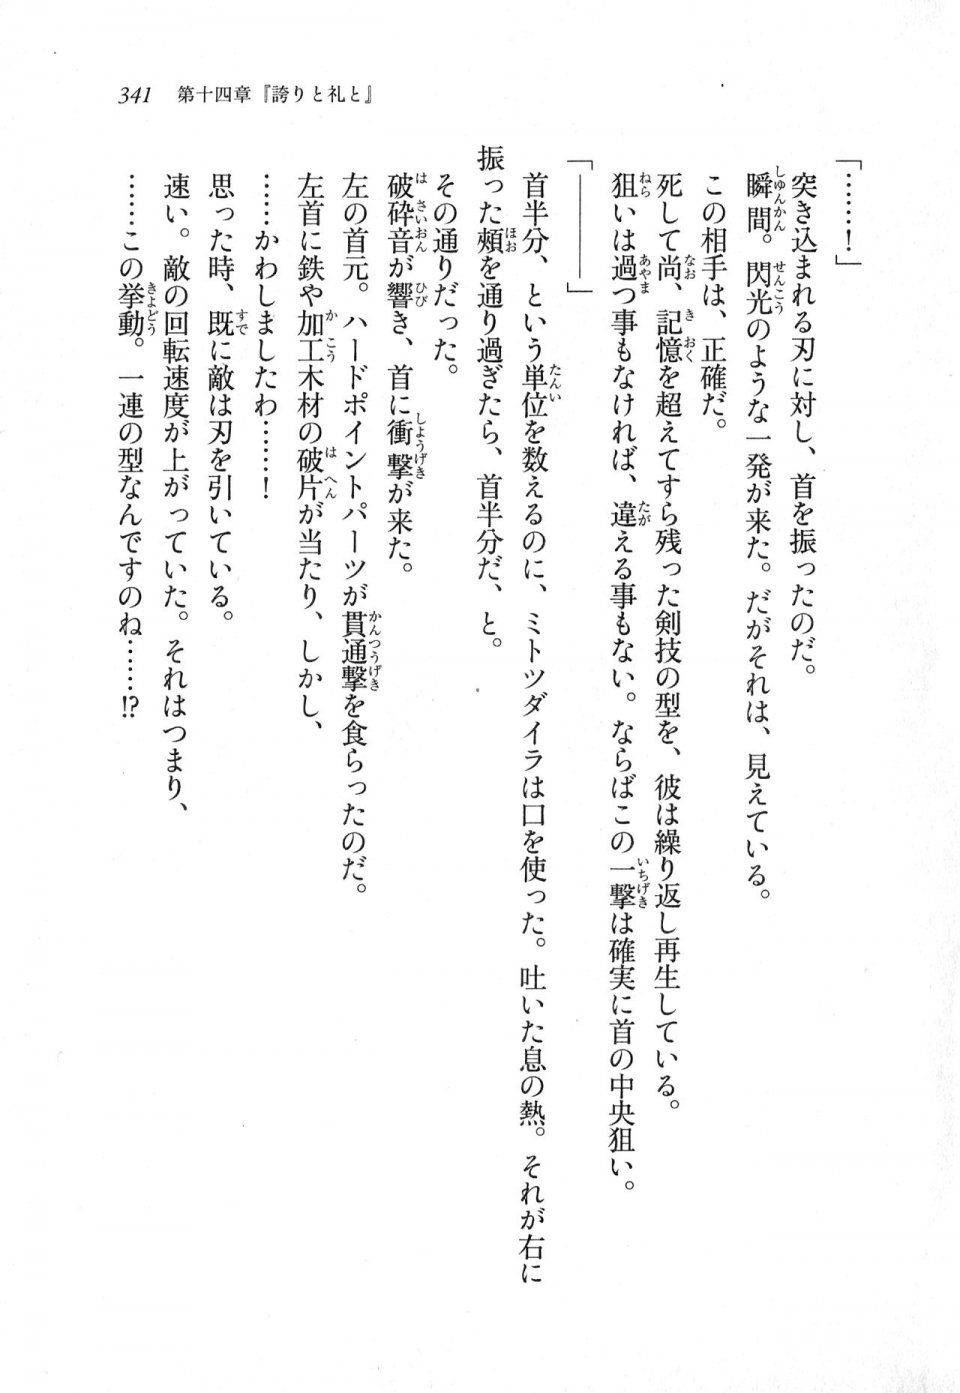 341　第十四章『誇りと礼と』
「……！」
突き込まれる刃に対し、首を振ったのだ。
瞬間。閃光のような一発が来た。だがそれは、見えている。
この相手は、正確だ。
死して尚、記憶を超えてすら残った剣技の型を、彼は繰り返し再生している。
狙いは過つ事もなければ、違える事もない。ならばこの一撃は確実に首の中央狙い。
「―――――」
首半分、という単位を数えるのに、ミトツダイラは口を使った。吐いた息の熱。それが右に
振った頰を通り過ぎたら、首半分だ、と。
その通りだった。
破砕音が響き、首に衝撃が来た。
左の首元。ハードポイントパーツが貫通撃を食らったのだ。
左首に鉄や加工木材の破片が当たり、しかし、
……かわしましたわ……！
思った時、既に敵は刃を引いている。
速い。敵の回転速度が上がっていた。それはつまり、
……この挙動。一連の型なんですのね……!?